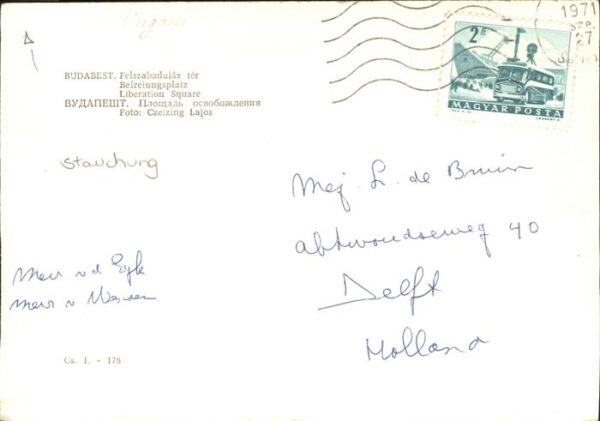 Ungarn
1971
27
2 Ft
MAGYAR POSTA
BUDAPEST. Felszabadulás tér
Befreiungsplatz
Liberation Square
БУДАПЕШТ. Площадь освобождения
Foto: Czeizing Lajos
stauchung
Mej. L. de Bruin
abtwoudseweg 40
Delft
Holland
Mevr v.d Eyk
Mevr v
Cs. I. - 178